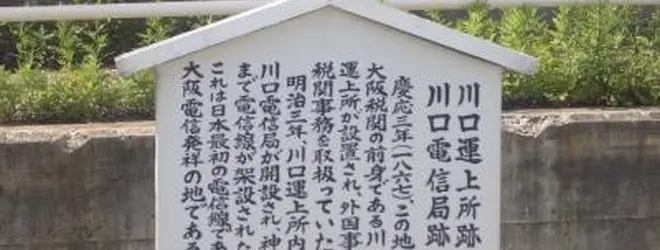 川口運上所跡
川口電信局跡
慶応三年(一八六七)、この地
大阪税関の前身である川
運上所が設置され、外国事
税関事務を取扱っていた
明治三年、川口運上所内
川口電信局が開設され、神
まで電信線が架設された
これは日本最初の電信線であ
大阪電信発祥の地である